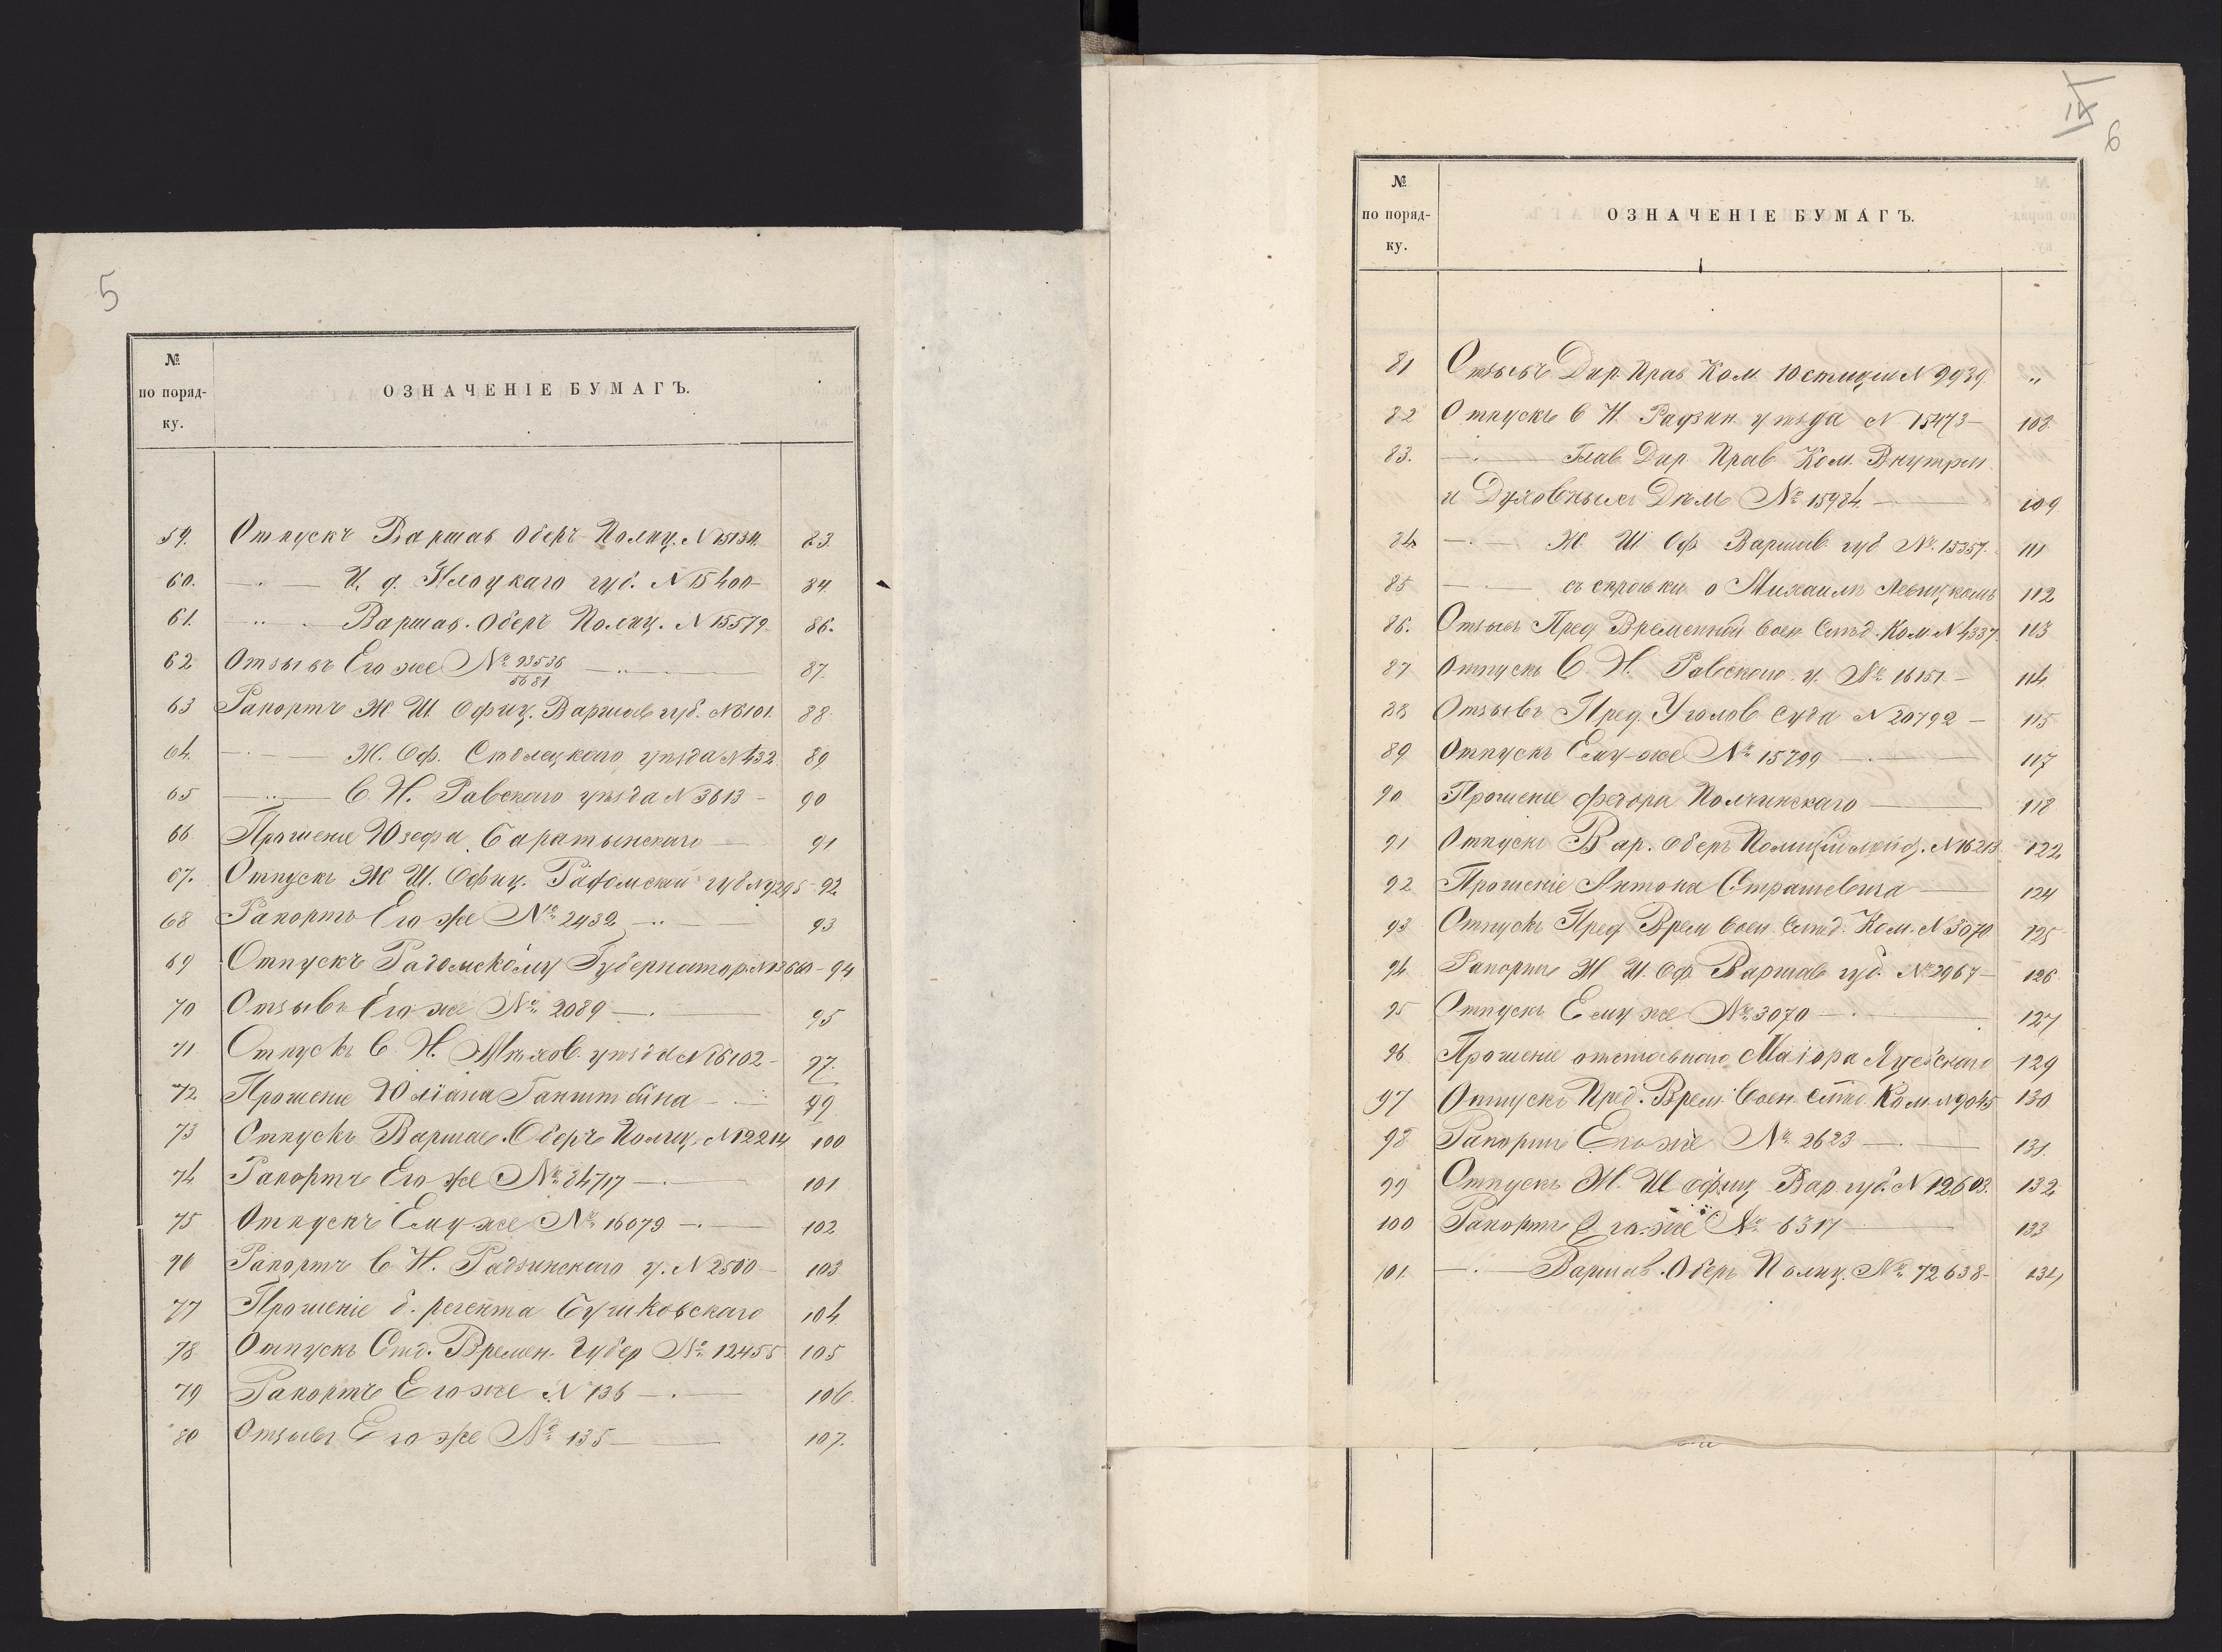 5
№
по поряд-
ку.
ОЗНАЧЕНІЕ БУМАГЪ.
59. Отпускъ Варшав Оберъ-Полиц. N 15134. 83.
60. —·— И. д. Плоцкаго губ. N 15400— 84.
61. —··— Варшав. Оберъ Полиц. N 15579. 86.
62. Отзывъ Его же № 93536/5681 —··— 87.
63 Рапортъ Ж. Ш. Офиц. Варшав губ. N 3101. 88.
64. —·— Ж. Оф. уѣзда N 432. 89.
65 —··— В. Н. Равскаго уѣзда N 3613 - 90
66. Прошеніе Юзефа Баратынскаго — 91
67. Отпускъ Ж Ш. Офиц. Радомской губ N 9295 - 92.
68 Рапортъ Его же № 2432 —··— 93
69 Отпускъ Радомскому Губернатор. N 13660 - 94
70 Отзывъ Его же № 2089 —·— 95
71 Отпускъ В. Н. Мѣхов. уѣзда N 16102 - 97.
72. Прошеніе Юліана — 99
73 Отпускъ Варшав. Оберъ Полиц. N 12214 100
74 Рапортъ Его же № 84717 —·— 101
75 Отпускъ Ему-же № 16079 —·— 102
76 Рапортъ В Н. Радзинскаго у. N 2500 — 103
77 Прошеніе б. регента Бучиковскаго 104
78 Отпускъ Времен. Губер № 12455 105
79 Рапортъ Его же N 136 —·— 106.
80 Отзывъ Его же № 135 — 107.
6
№
по поряд-
ку.
ОЗНАЧЕНІЕ БУМАГЪ.
81 Отзывъ Дир. Прав Ком. Юстиціи N 9939 "
82 Отпускъ В Н. Радзин. уѣзда N 15473 — 108.
83. —·— Глав Дир Прав Ком. Внутрен.
и Духовныхъ Дѣлъ № 15984. — 109
84 —·— Ж. Ш. Оф Варшав. губ № 15357. 111
85 —·— съ справки о Михаилѣ Левицкомъ 112
86. Отзывъ Пред Временной Воен Слѣд. Ком. N 4337. 113
87 Отпускъ В. Н. Равскаго у. № 16151 — 114
88 Отзывъ Пред. Уголов Суда N 20792 — 115
89 Отпускъ Ему-же № 15799 —·— 117
90 Прошеніе Федора Полчинскаго — 118
91 Отпускъ Вар. Оберъ Полиціймейс. N 16213. 122
92 Прошеніе Антона Страшевича — 124
93 Отпускъ Пред Врем Воен. Слѣд. Ком. N 3070 125
94 Рапортъ Ж. Ш. Оф. Варшав губ. № 2967 — 126
95 Отпускъ Ему же № 3070 —·— 127
96 Прошеніе отставнаго Маіора 129
97 Отпускъ Пред. Врем. Воен. Слѣд. Ком. N 9045 130
98 Рапортъ Его же № 2623 —·— 131.
99 Отпускъ Ж. Ш Офиц Вар. губ. N 12608. 132
100 Рапортъ Его-же № 6317 — 133
101. —·— Варшав. Оберъ Полиц. № 72638 - 134